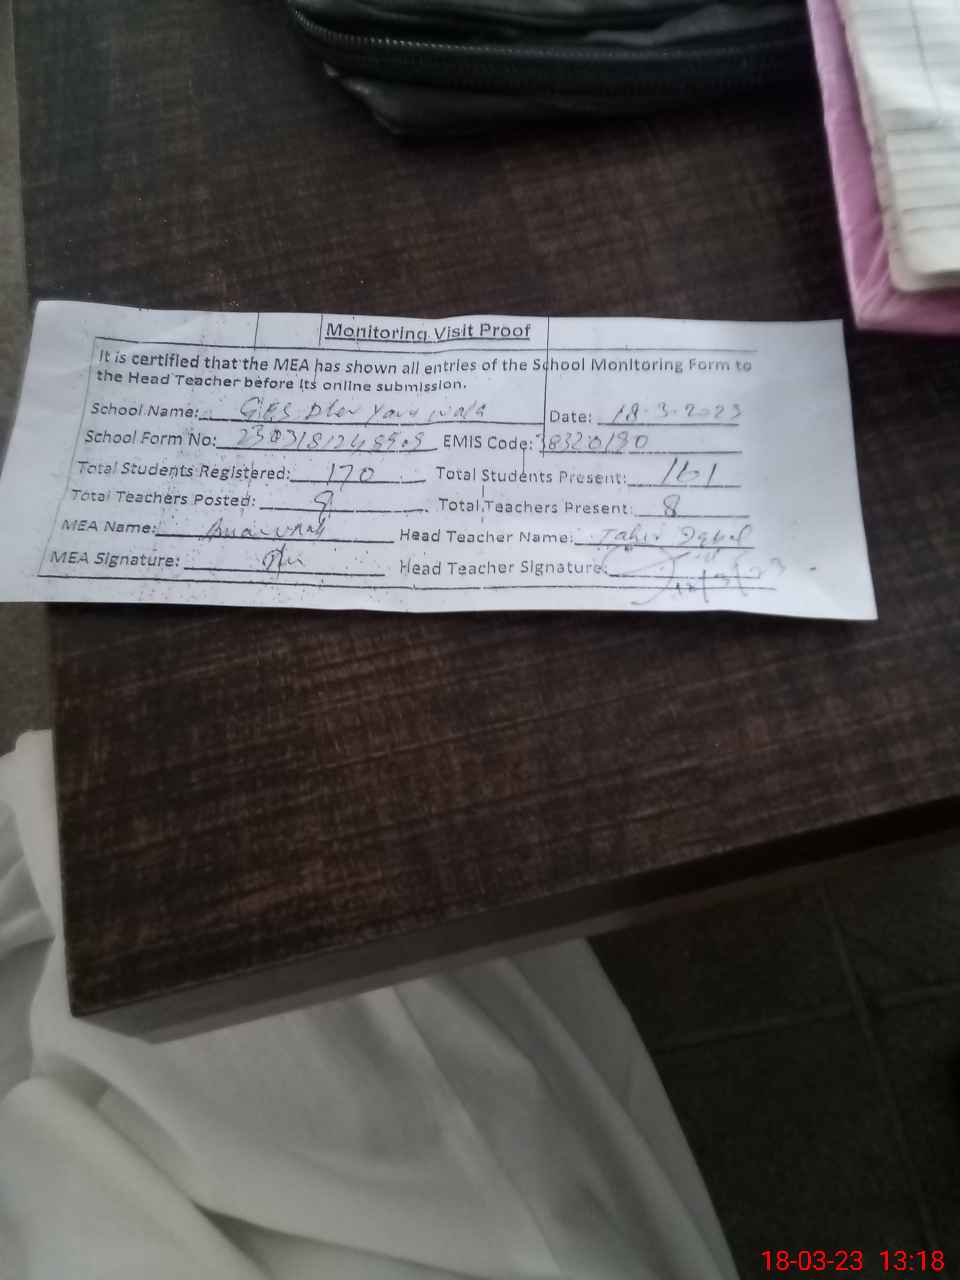 Monitoring Visit Proof
It is certified that the MEA has shown all entries of the School Monitoring Form to
the Head Teacher before its online submission.
School Name: GES Dher Date: 18-3-2023
School Form No: EMIS Code: 38320190
Total Students Registered: 170 Total Students Present: 161
Total Teachers Posted: Total Teachers Present: 8
MEA Name: Head Teacher Name: Tahir Iqbal
MEA Signature: Head Teacher Signature:
18/3/23
18-03-23 13:18